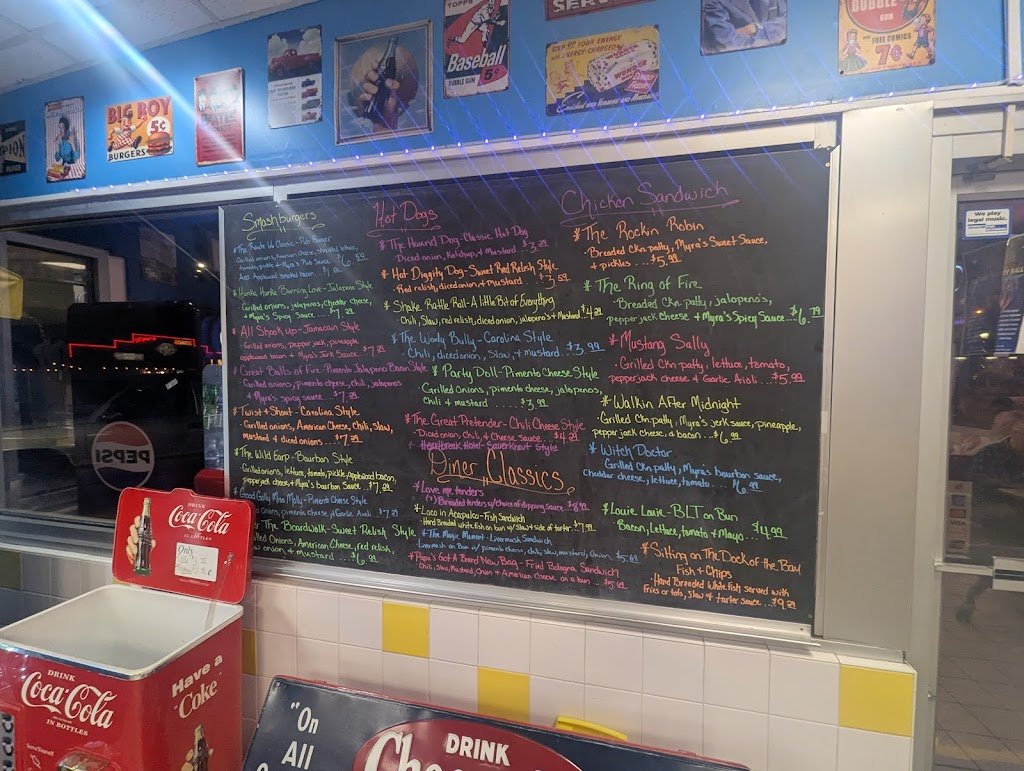 TOPPS
Baseball
BUBBLE GUM 5¢
SERVICE
STEP UP YOUR ENERGY
WITH ENERGY-CHARGED
WONDER
Enriched with Vitamins and Minerals
BUBBLE
GUM
WITH FREE COMICS
7¢
BIG BOY
5¢
BURGERS
PION
We play
legal music.
Smashburgers
* The Route 66 Classic - Pub Burger
Grilled onions, American Cheese, shredded lettuce,
tomato, pickle + Myra's Pub Sauce $6.59
Add Applewood smoked bacon
* Hunka Hunka Burning Love - Jalapeno Style
Grilled onions, jalapenos, cheddar cheese,
+ Myra's Spicy Sauce $7.
* All Shook Up - Jamacan Style
Grilled onions, pepper jack, pineapple,
applewood bacon + Myra's Jerk Sauce $7.
* Great Balls of Fire - Pimento Jalapeno Bacon Style
Grilled onions, pimento cheese, chili, jalapenos
+ Myra's spicy sauce $7.
* Twist + Shout - Carolina Style
Grilled onions, American Cheese, Chili, Slaw,
mustard + diced onions $7.
* The Wild Earp - Bourbon Style
Grilled onions, lettuce, tomato, pickle, applewood bacon,
pepper jack cheese + Myra's bourbon Sauce $7.
* Good Golly Miss Molly - Pimento Cheese Style
Onions, pimento cheese, jalapenos + Garlic Aioli $7.
er The Boardwalk - Sweet Relish Style
lled Onions, American Cheese, red relish,
onion, + mustard... $6.99
Hot Dogs
* The Hound Dog - Classic Hot Dog
Diced onion, Ketchup, + Mustard $3.29
* Hot Diggity Dog - Sweet Red Relish Style
Red relish, diced onion + mustard $3.59
* Shake Rattle Roll - A little Bit of Everything
Chili, Slaw, red relish, diced onion, jalapeno's + Mustard $4.29
* The Wooly Bully - Carolina Style
Chili, diced onion, Slaw, + mustard... $3.99
* Party Doll - Pimento Cheese Style
Grilled Onions, pimento cheese, jalapeno's,
chili + mustard $3.99
* The Great Pretender - Chili Cheese Style
Diced onion, Chili, + Cheese Sauce $4.29
* Heartbreak Hotel - Sauerkraut Style
Chicken Sandwich
* The Rockin Robin
- Breaded Ckn. patty, Myra's Sweet Sauce,
+ pickles... $5.99
* The Ring of Fire
- Breaded Ckn. patty, jalapeno's,
pepper jack Cheese + Myra's Spicy Sauce... $6.79
* Mustang Sally
- Grilled Ckn patty, lettuce, tomato,
pepper jack cheese + Garlic Aioli... $5.99
* Walkin After Midnight
- Grilled Ckn. Patty, Myra's jerk sauce, pineapple,
pepper jack Cheese, + bacon... $6.99
* Witch Doctor
Grilled Ckn patty, Myra's bourbon sauce,
cheddar cheese, lettuce, tomato... $6.99
Diner Classics
* Love me tenders
(3) Breaded tenders w/ choice of dipping sauce
* Loco in Acapulco - Fish Sandwich
Hand Breaded white fish on bun w/ slaw + side of tarter $7.99
* The Magic Moment - Livermush Sandwich
Livermush on Bun w/ pimento cheese, chili, slaw, mustard, Onion. $5.69
* Papa's Got A Brand New Bag - Fried Bologna Sandwich
Chili, Slaw, Mustard, Onion + American cheese on a bun
* Louie Louie - BLT on Bun
Bacon, Lettuce, tomato + Mayo.. $4.99
* Sitting on The Dock of the Bay
Fish + Chips
- Hand Breaded White Fish served with
fries or tots, slaw + tarter sauce... $9.29
PEPSI
DRINK
Coca-Cola
IN BOTTLES
Only
DRINK
Coca-Cola
IN BOTTLES
Have a
Coke
Serve Yourself
"On
All
DRINK
Chee